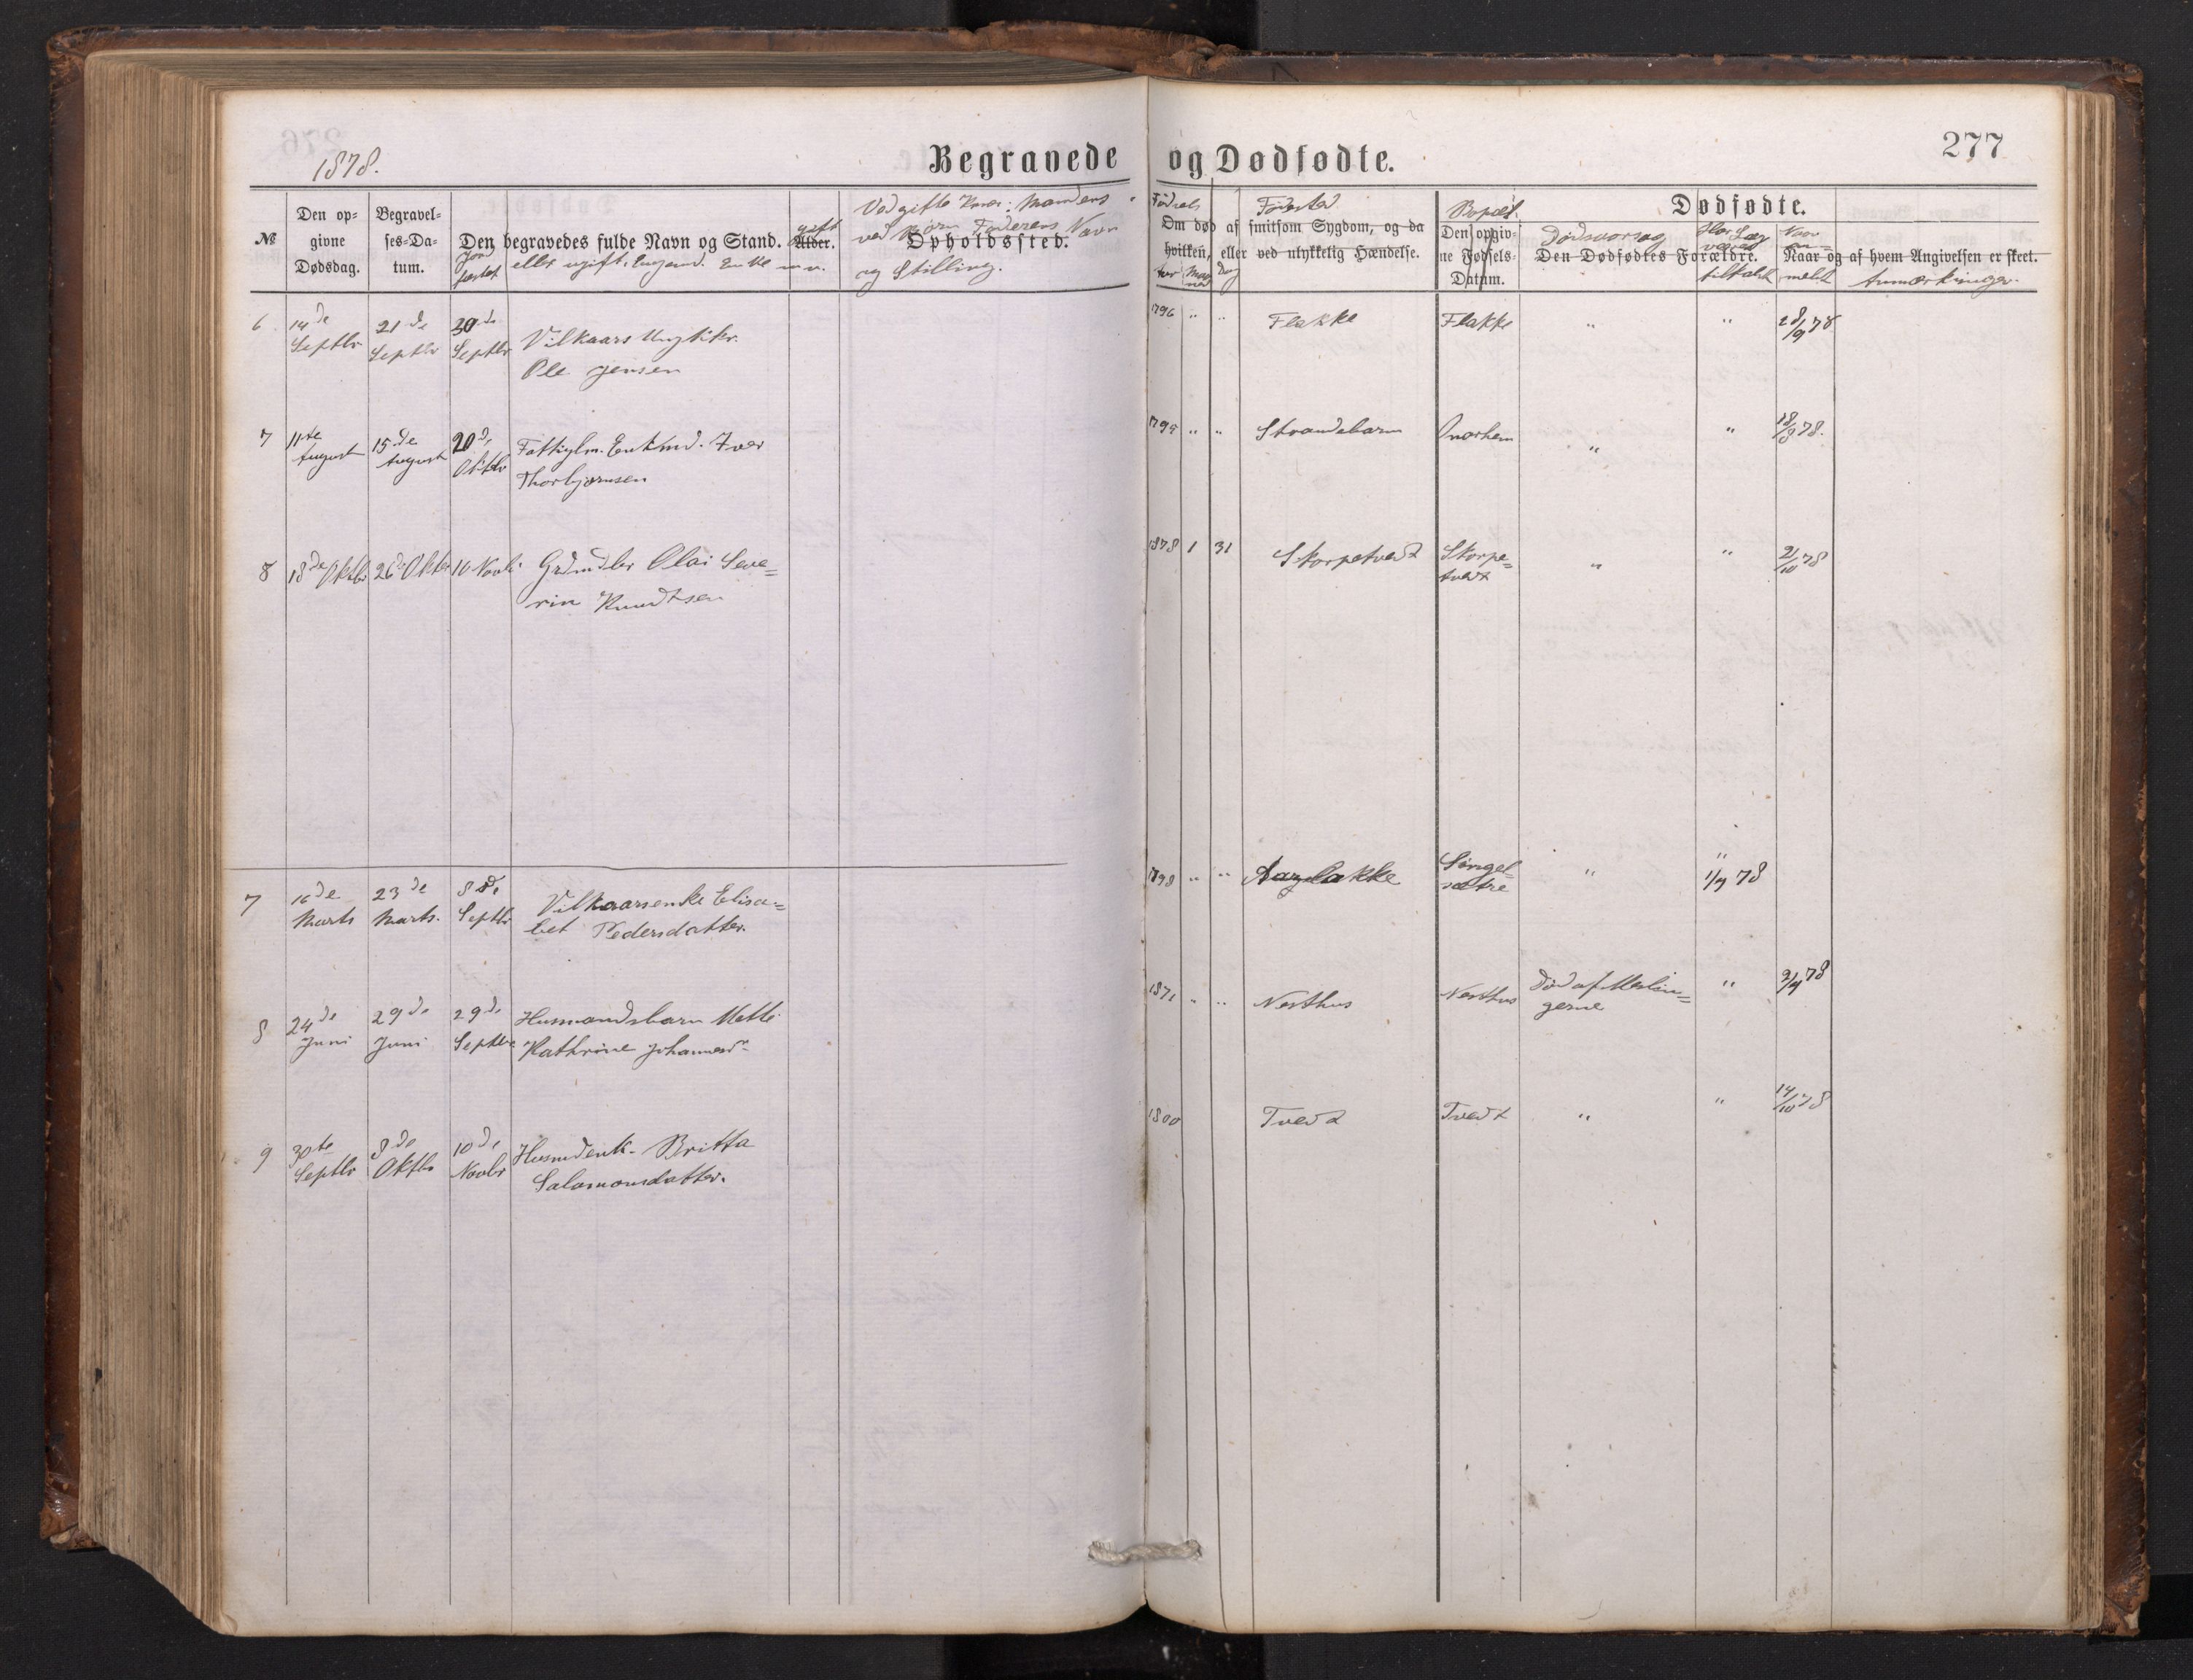 1878.
Begravede og Dødfødte.
277
№
Den op-
givne
Dødsdag.
Begravel-
ses-Da-
tum.
Jord
fæstet
Den begravedes fulde Navn og Stand.
eller ugift. Ungmd. Enke m. v.
gift
Alder.
Ved gifte Koner: Mandens
ved Børn Faderens Navn
Opholdssted.
og Stilling.
Fødsels
Fødested
Om død af smitsom Sygdom, og da
hvilken, eller ved ulykkelig Hændelse.
Aar Maaned Dag
Bopæl.
Den opgiv-
ne Fødsels-
Datum.
Dødfødte.
Dødsaarsag
Den Dødfødtes Forældre.
Har Læge
været
tilkaldt
Naar
an=
meldt
Naar og af hvem Angivelsen er skeet.
Anmærkninger.
6 14de Septbr 21de Septbr 30de Septbr Vilkaars
Ole Jensen
1796 " " Flakke Flakke " " 28/9 78
7 11te August 15de August 20de Oktbr Fattiglm. Enkmd. Iver
Thorbjørnsen
1795 " " Strandebarm Norhem " " 18/8 78.
8 18de Oktbr 26de Oktbr 10 Novbr Grdmdbr Olai Seve=
rin Knudtsen
1878 1 31 Skorpetvedt Skorpe=
tvedt " " 2/10 78
7 16de Marts 23de Marts. 8de Septbr Vilkaarsenke Elisa=
bet Pedersdatter.
1798 " " Aarlakke Singel-
sætre " " 1/4 78
8 24de Juni 29de Juni 29de Septbr Husmandsbarn Mette
Kathrine Johannesd.
1871 " " Nesthus Nesthus Død af Meslin=
gerne "
9 30te Septbr 8de Oktbr 10de Novbr Husmdenk. Britta
Salamonsdatter.
1800 Tvedt Tvedt " " 14/10 78